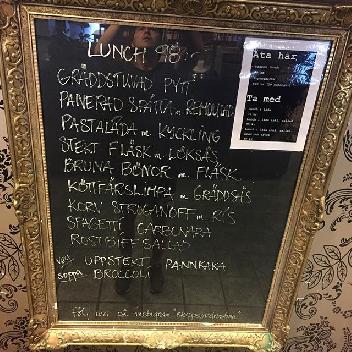 LUNCH 98:-
GRÄDDSTUVAD PYTT
PANERAD SPÄTTA m. REMOULAD
PASTALÅDA m. KYCKLING
STEKT FLÄSK m. LÖKSÅS
BRUNA BÖNOR m. FLÄSK
KÖTTFÄRSLIMPA m. GRÄDDSÅS
KORV STROGANOFF m. RIS
SPAGETTI CARBONARA
ROSTBIFFSALLAD
UPPSTEKT PANNKAKA
SOPPA: BROCCOLI
på instagram
Äta här
Ta med